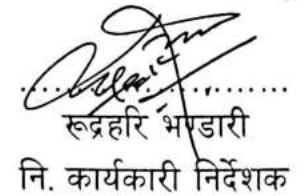 रूद्रहरि भण्डारी
नि. कार्यकारी निर्देशक